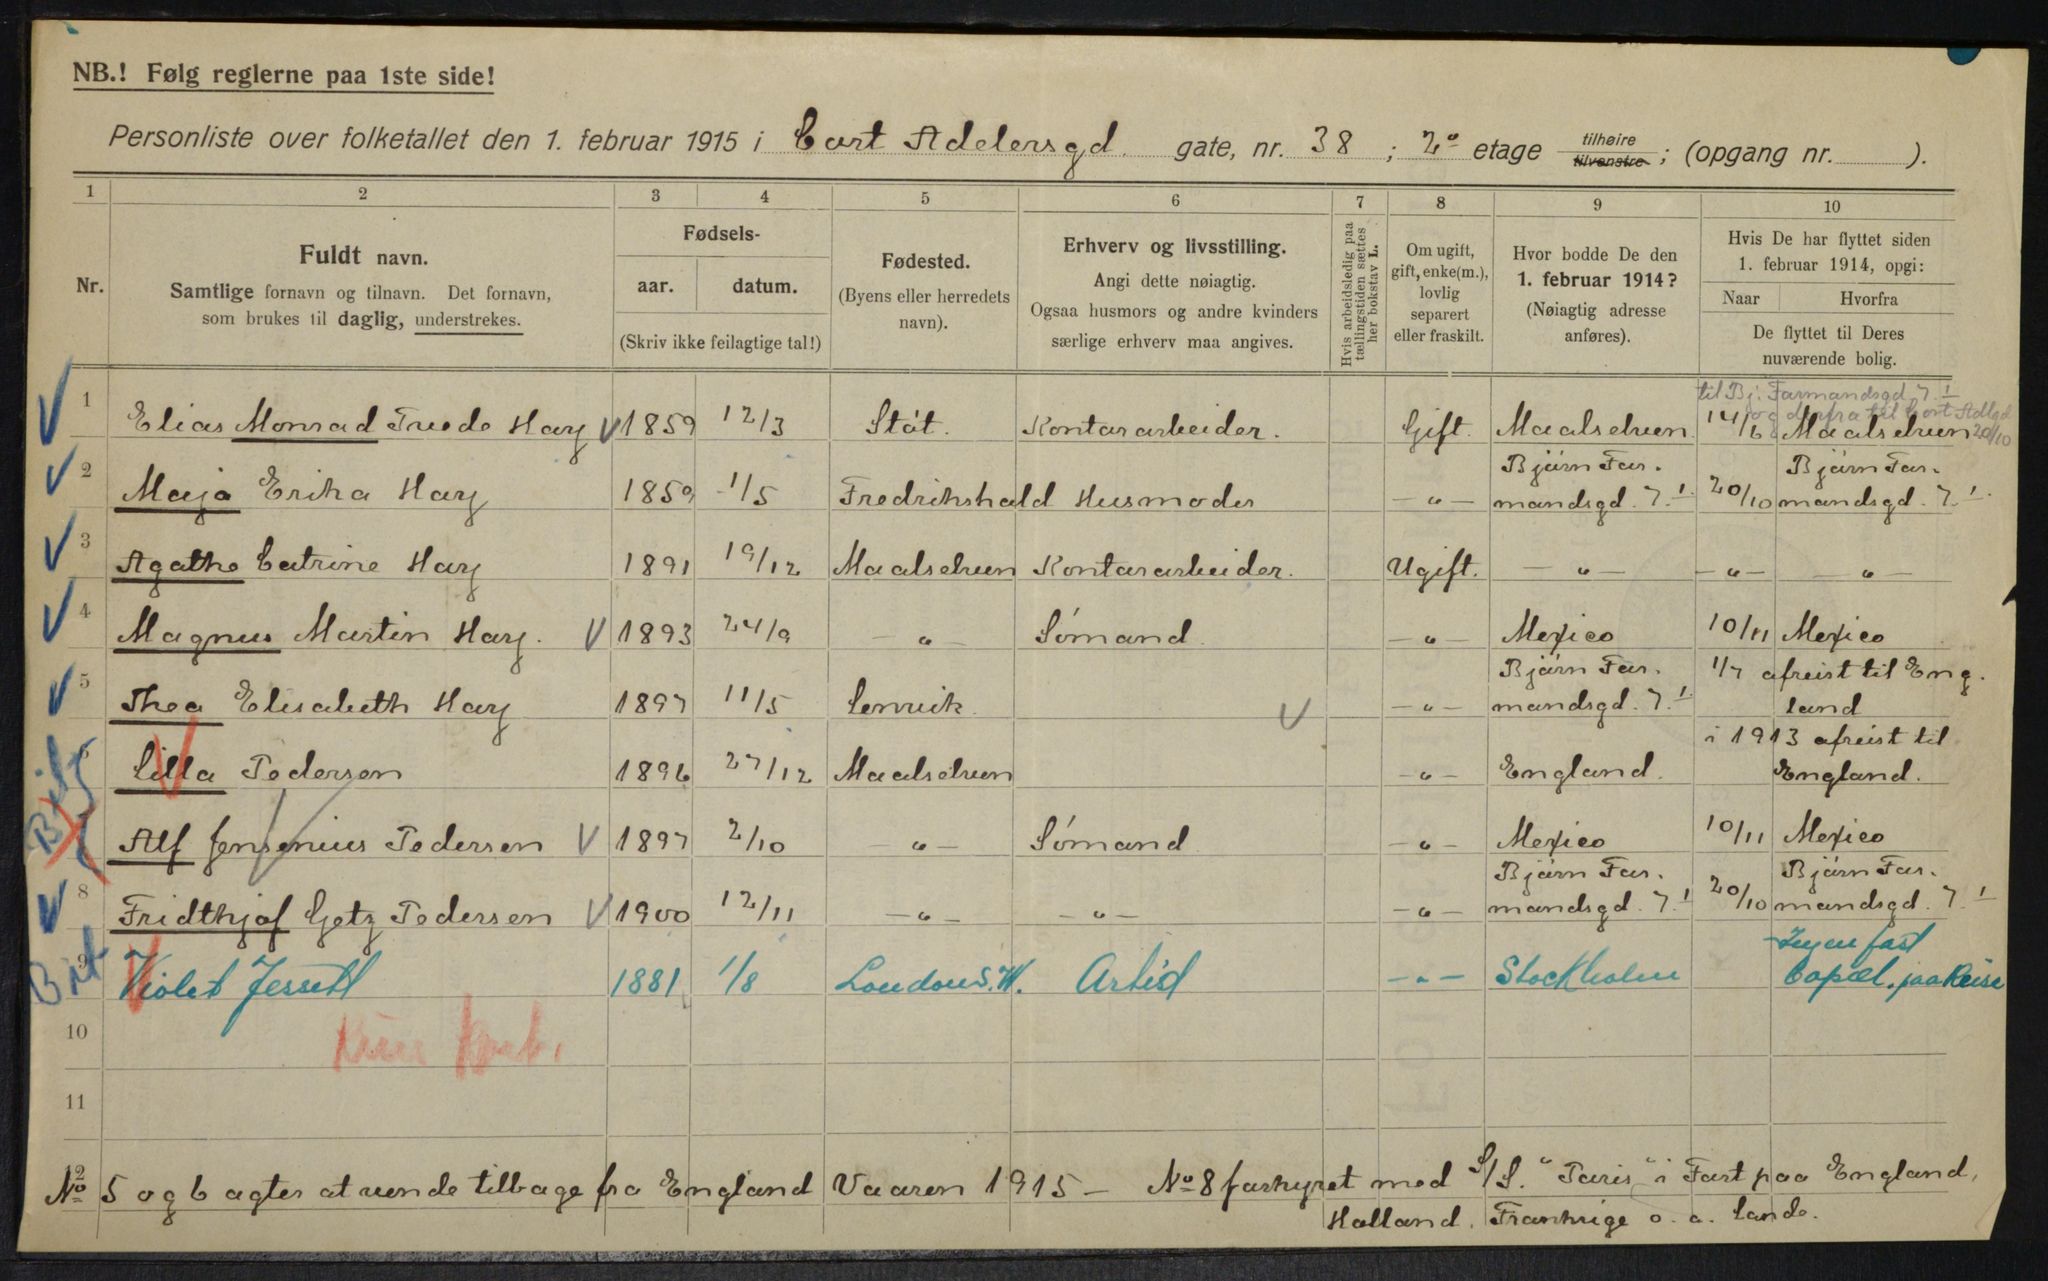 NB.! Følg reglerne paa 1ste side!
Personliste over folketallet den 1. februar 1915 i Cort Adelersgd. gate, nr. 38 ; 2den etage tilhøire tilvenstre ; (opgang nr. ).
1 2 3 4 5 6 7 8 9 10
Nr. Fuldt navn. Samtlige fornavn og tilnavn. Det fornavn, som brukes til daglig, understrekes.
Fødsels- aar. datum. (Skriv ikke feilagtige tal!)
Fødested. (Byens eller herredets navn).
Erhverv og livsstilling. Angi dette nøiagtig. Ogsaa husmors og andre kvinders særlige erhverv maa angives.
Hvis arbeidsledig paa tællingstiden sættes her bokstav L.
Om ugift, gift, enke(m.), lovlig separert eller fraskilt.
Hvor bodde De den 1. februar 1914? (Nøiagtig adresse anføres).
Hvis De har flyttet siden 1. februar 1914, opgi: Naar Hvorfra De flyttet til Deres nuværende bolig.
til Bj. Farmandsgd 7 I og derfra til Cort Adlgd 20/10
1 Elias Monrad Hay 1859 12/3 Kontorarbeider. Gift. Maalselven 14/6 Maalselven
2 Maja Erika Hay 1859 1/5 Fredrikshald Husmoder —„— Bjørn Farmandsgd. 7 I 20/10 Bjørn Farmandsgd. 7 I
3 Agathe Catrine Hay 1891 19/12 Maalselven Kontorarbeider. Ugift. —„— —„— —„—
4 Magnus Martin Hay. 1893 24/9 —„— Sømand —„— Mexico 10/11 Mexico
5 Thea Elisabeth Hay 1897 11/5 Lenvik —„— Bjørn Farmandsgd. 7 I 1/7 afreist til England
6 Lilla Pedersen 1896 27/12 Maalselven —„— England. i 1913 afreist til England.
7 Alf Jensenius Pedersen 1897 2/10 —„— Sømand —„— Mexico 10/11 Mexico
8 Fridthjof Getz Pedersen 1900 12/11 —„— —„— —„— Bjørn Farmandsgd. 7 I 20/10 Bjørn Farmandsgd. 7 I
9 Violet 1881 1/8 London S.W. Artist —„— Stockholm Ingen fast Bopæl. paa Reise
10
11
12
No 5 og 6 agter at vende tilbage fra England Vaaren 1915 — No 8 forhyret med S/S. "Paris" i Fart paa England,
Holland, Frankrige o. a. Lande.